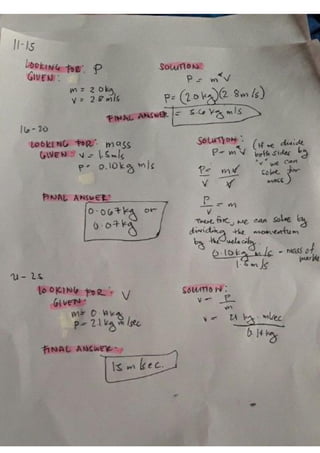 11-15
LOOKING FOR: P
GIVEN:
m = 2.0kg
v = 2.8 m/s
SOLUTION
P = m • V
P = (2.0kg)(2.8m/s)
FINAL ANSWER = 5.6 kg m/s
16-20
LOOKING FOR: mass
GIVEN: v = 1.5m/s
p = 0.10kg m/s
SOLUTION:
P = m•V (If we divide
both sides by
"v" we can
solve for
mass)
P = mv
V V
P = m
V
Therefore, we can solve by
dividing the momentum
by the velocity.
0.10kg m/s = mass of
1.5m/s marble
FINAL ANSWER:
0.067kg or
0.07kg
21-25
LOOKING FOR: V
GIVEN:
m = 0.14kg
P = 21kg m/sec
SOLUTION:
v = P
m
v = 21 kg • m/sec
0.14kg
FINAL ANSWER
15 m/sec.